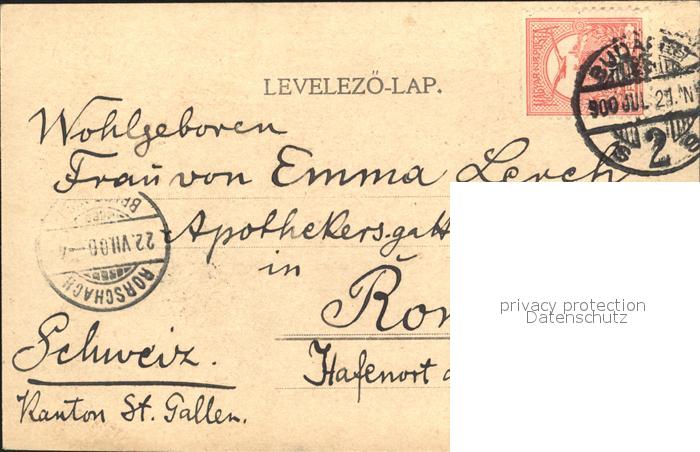 LEVELEZŐ-LAP.
BUDAPEST
900 JUL 21. N
2
Wohlgeboren
Frau von Emma Lerch
Apothekersgatt
in
Ro
Hafenort
22.VII.00
RORSCHACH
Schweiz.
Kanton St. Gallen.
privacy protection
Datenschutz